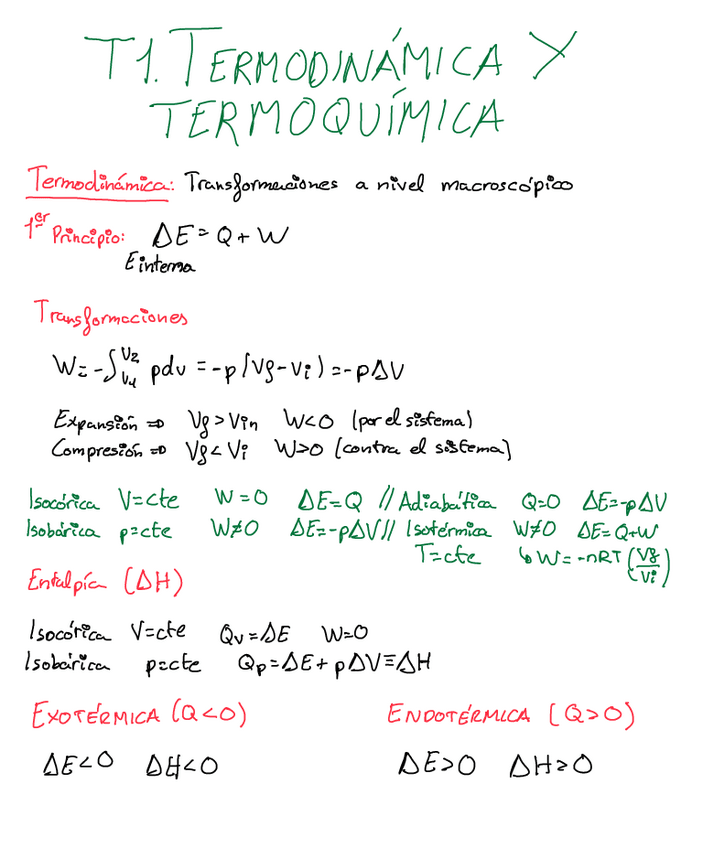 T1. TERMODINÁMICA Y
TERMOQUÍMICA
Termodinámica: Transformaciones a nivel macroscópico
1er Principio: ΔE = Q + W
E interna
Transformaciones
W = -∫V₁V₂ pdv = -p(Vf-Vi) = -pΔV
Expansión ⇒ Vf > Vin W<0 (por el sistema)
Compresión ⇒ Vf < Vi W>0 (contra el sistema)
Isocórica V=cte W=0 ΔE=Q // Adiabática Q=0 ΔE=-pΔV
Isobárica p=cte W≠0 ΔE=-pΔV // Isotérmica W≠0 ΔE=Q+W
T=cte ↳ W=-nRT (Vf/Vi)
Entalpía (ΔH)
Isocórica V=cte Qv=ΔE W=0
Isobárica p=cte Qp=ΔE+pΔV≡ΔH
EXOTÉRMICA (Q<0) ENDOTÉRMICA (Q>0)
ΔE<0 ΔH<0 ΔE>0 ΔH>0